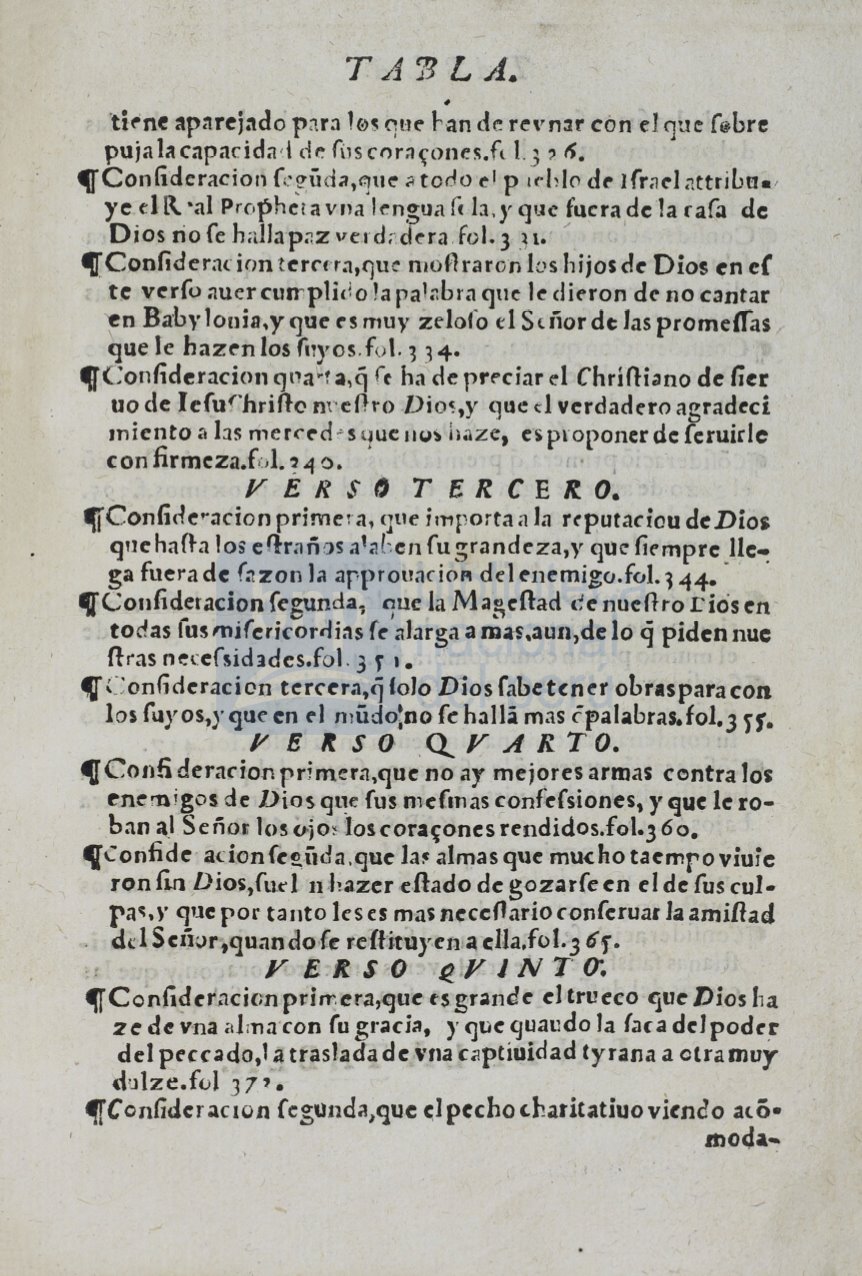 TABLA.
tiene aparejado para los que han de reynar con el que sobre
puja la capacidad de sus coraçones.fol.326.
¶Consideracion segũda,que a todo el pueblo de Israel attribu-
ye el Real Propheta vna lengua sola, y que fuera de la casa de
Dios no se halla paz verdadera fol.331.
¶Consideracion tercera,que mostraron los hijos de Dios en es
te verso auer cumplido la palabra que le dieron de no cantar
en Babylonia,y que es muy zeloso el Señor de las promessas
que le hazen los suyos.fol.334.
¶Consideracion quarta,q̃ se ha de preciar el Christiano de sier
uo de Iesu Christo nuestro Dios,y que el verdadero agradeci
miento a las mercedes que nos haze, es proponer de seruirle
con firmeza.fol.240.
VERSO TERCERO.
¶Consideracion primera, que importa a la reputaciou de Dios
que hasta los estraños alaben su grandeza,y que siempre lle-
ga fuera de sazon la approuacion del enemigo.fol.344.
¶Consideracion segunda, que la Magestad de nuestro Dios en
todas sus misericordias se alarga a mas,aun,de lo q̃ piden nue
stras necessidades.fol.351.
¶Consideracion tercera,q̃ solo Dios sabe tener obras para con
los suyos,y que en el mũdo no se hallã mas q̃ palabras.fol.355.
VERSO QVARTO.
¶Consideracion primera,que no ay mejores armas contra los
enemigos de Dios que sus mesmas confessiones, y que le ro-
ban al Señor los ojos los coraçones rendidos.fol.360.
¶Conside acion segũda,que las almas que mucho taempo viuie
ron sin Dios,suel n hazer estado de gozarse en el de sus cul-
pas,y que por tanto les es mas necessario conseruar la amistad
del Señor,quando se restituyen a ella.fol.365.
VERSO QVINTO.
¶Consideracion primera,que es grande el trueco que Dios ha
ze de vna alma con su gracia, y que quaudo la saca del poder
del peccado,la traslada de vna captiuidad tyrana a otra muy
dulze.fol 37
¶Consideracion segunda,que el pecho charitatiuo viendo acõ-
moda-